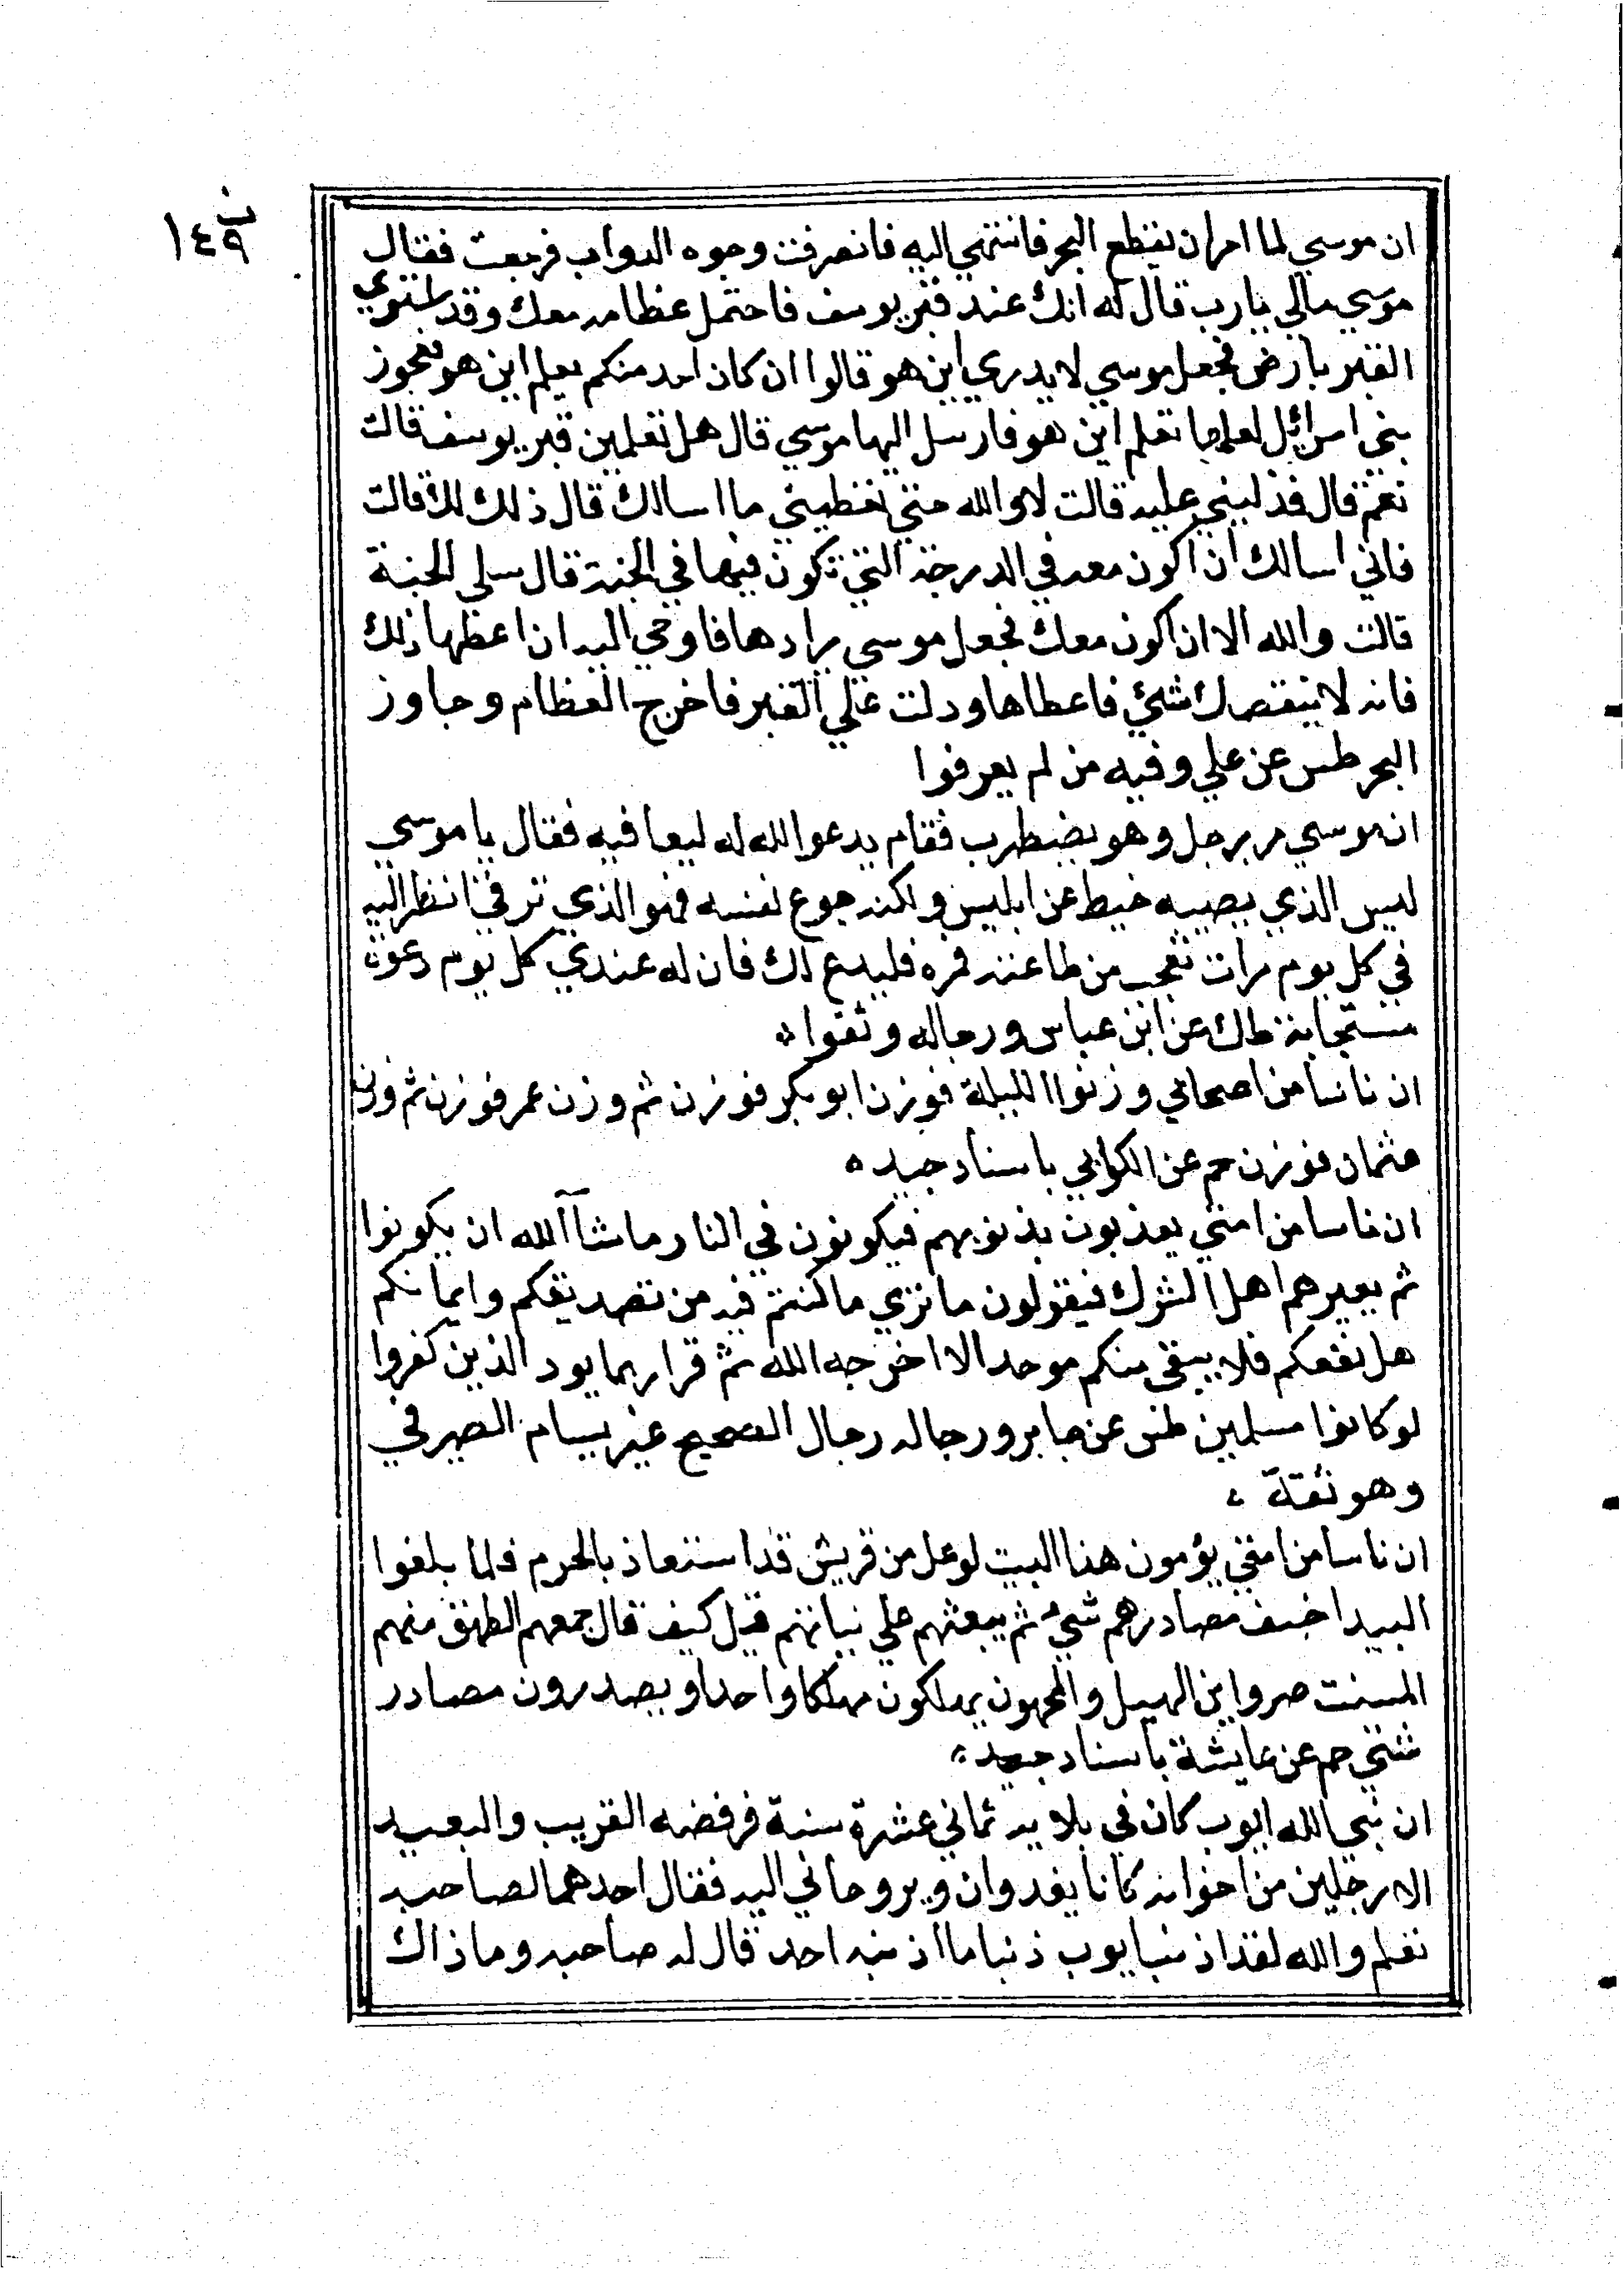 ب
١٤٩
ان موسي لما امر ان يقطع البحر فانتهي اليه فانصرفت وجوه الدواب فرجعت فقال
موسي مالي يارب قال له انك عند قبر يوسف فاحتمل عظامه معك وقد استوي
القبر بارض فجعل موسي لا يدري اين هو قالوا ان كان احد منكم يعلم اين هو فعجوز
بني اسرائيل لعلها تعلم اين هو فارسل اليها موسي قال هل تعلمين قبر يوسف قالت
نعم قال فدليني عليه قالت لا والله حتي تعطيني ما اسالك قال ذلك لك قالت
فاني اسالك ان اكون معه في الدرجة التي تكون فيها في الجنة قال سلي الجنة
قالت والله الا ان اكون معك فجعل موسي يرادها فاوحي اليه ان اعطها ذلك
فانه لا ينقصك شئ فاعطاها ودلت علي القبر فاخرج العظام وجاوز
البحر طس عن علي وفيه من لم يعرفوا
ان موسي مر برجل وهو يضطرب فقام يدعوا الله له ليعافيه فقال يا موسي
ليس الذي يصيبه خبط عن ابليس ولكنه جوع نفسه فهو الذي تري اني انظر اليه
في كل يوم مرات تعجب من طاعته فمره فليدع لك فان له عندي كل يوم دعوة
مستجابة طك عن ابن عباس ورجاله وثقوا
ان ناسا من اصحابي وزنوا الليلة فوزن ابو بكر فوزن ثم وزن عمر فوزن ثم وزن
عثمان فوزن حم عن الكوابي باسناد جيد
ان ناسا من امتي يعذبون بذنوبهم فيكونون في النار ما شاآلله ان يكونوا
ثم يعيرهم اهل الشرك فيقولون ما نري ما كنتم فيه من تصديقكم وايمانكم
هل نفعكم فلا يبقى منكم موحد الا اخرجه الله ثم قرا ربما يود الذين كفروا
لو كانوا مسلمين طس عن جابر ورجاله رجال الصحيح غير بسام الصيرفي
وهو ثقة
ان ناسا من امتي يؤمون هذا البيت لوعل من قريش قد استعاذ بالحرم فلما بلغوا
البيدا خسف مصادرهم شتي ثم يبعثهم علي نياتهم قيل كيف قال جمعهم الطريق منهم
المسنت صروابن الهبيل والمجهون يهلكون مهلكا واحدا ويصدرون مصادر
شتي حم عن عايشة باسناد جيد
ان نبي الله ايوب كان في بلايه ثماني عشرة سنة فرفضه القريب والبعيد
الا رجلين من اخوانه كانا يغدوان ويروحاني اليه فقال احدهما لصاحبه
تعلم والله لقد اذنب ايوب ذنبا ما اذنبه احد قال له صاحبه وما ذاك